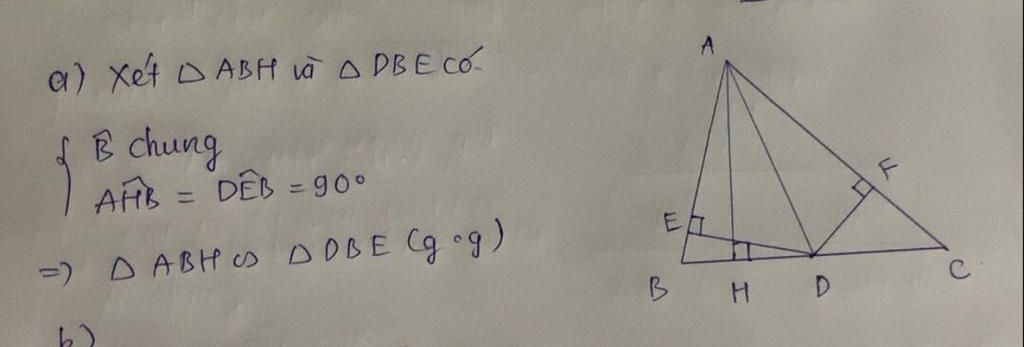 a) Xét △ ABH và △ DBE có
{ B̂ chung
AĤB = DÊB = 90°
=> △ ABH ∽ △ DBE (g.g)
b)
A
F
E
B
H
D
C